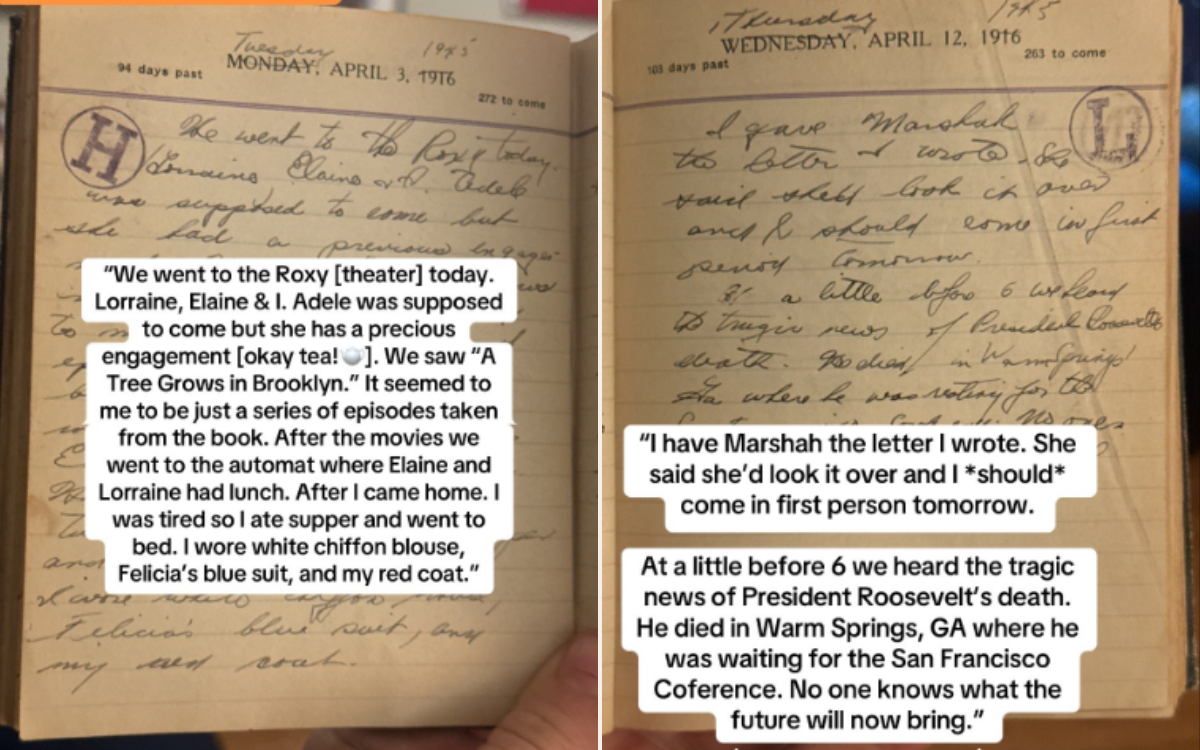 Tuesday 1945
MONDAY, APRIL 3, 1916
94 days past
272 to come
H
We went to the Roxy today.
Lorraine, Elaine & I. Adele
was supposed to come but
she had a previous engage-
“We went to the Roxy [theater] today.
Lorraine, Elaine & I. Adele was supposed
to come but she has a precious
engagement [okay tea!🫖]. We saw “A
Tree Grows in Brooklyn.” It seemed to
me to be just a series of episodes taken
from the book. After the movies we
went to the automat where Elaine and
Lorraine had lunch. After I came home. I
was tired so I ate supper and went to
bed. I wore white chiffon blouse,
Felicia’s blue suit, and my red coat.”
I wore white chiffon blouse,
Felicia's blue suit, and
my red coat.
Thursday 1945
WEDNESDAY, APRIL 12, 1916
103 days past
263 to come
L
I gave Marshak
the letter I wrote. She
said she'll look it over
and I should come in first
period tomorrow.
At a little before 6 we heard
the tragic news of President Roosevelt's
death. He died in Warm Springs
Ga where he was resting for the
No one
“I have Marshah the letter I wrote. She
said she’d look it over and I *should*
come in first person tomorrow.
At a little before 6 we heard the tragic
news of President Roosevelt’s death.
He died in Warm Springs, GA where he
was waiting for the San Francisco
Coference. No one knows what the
future will now bring.”